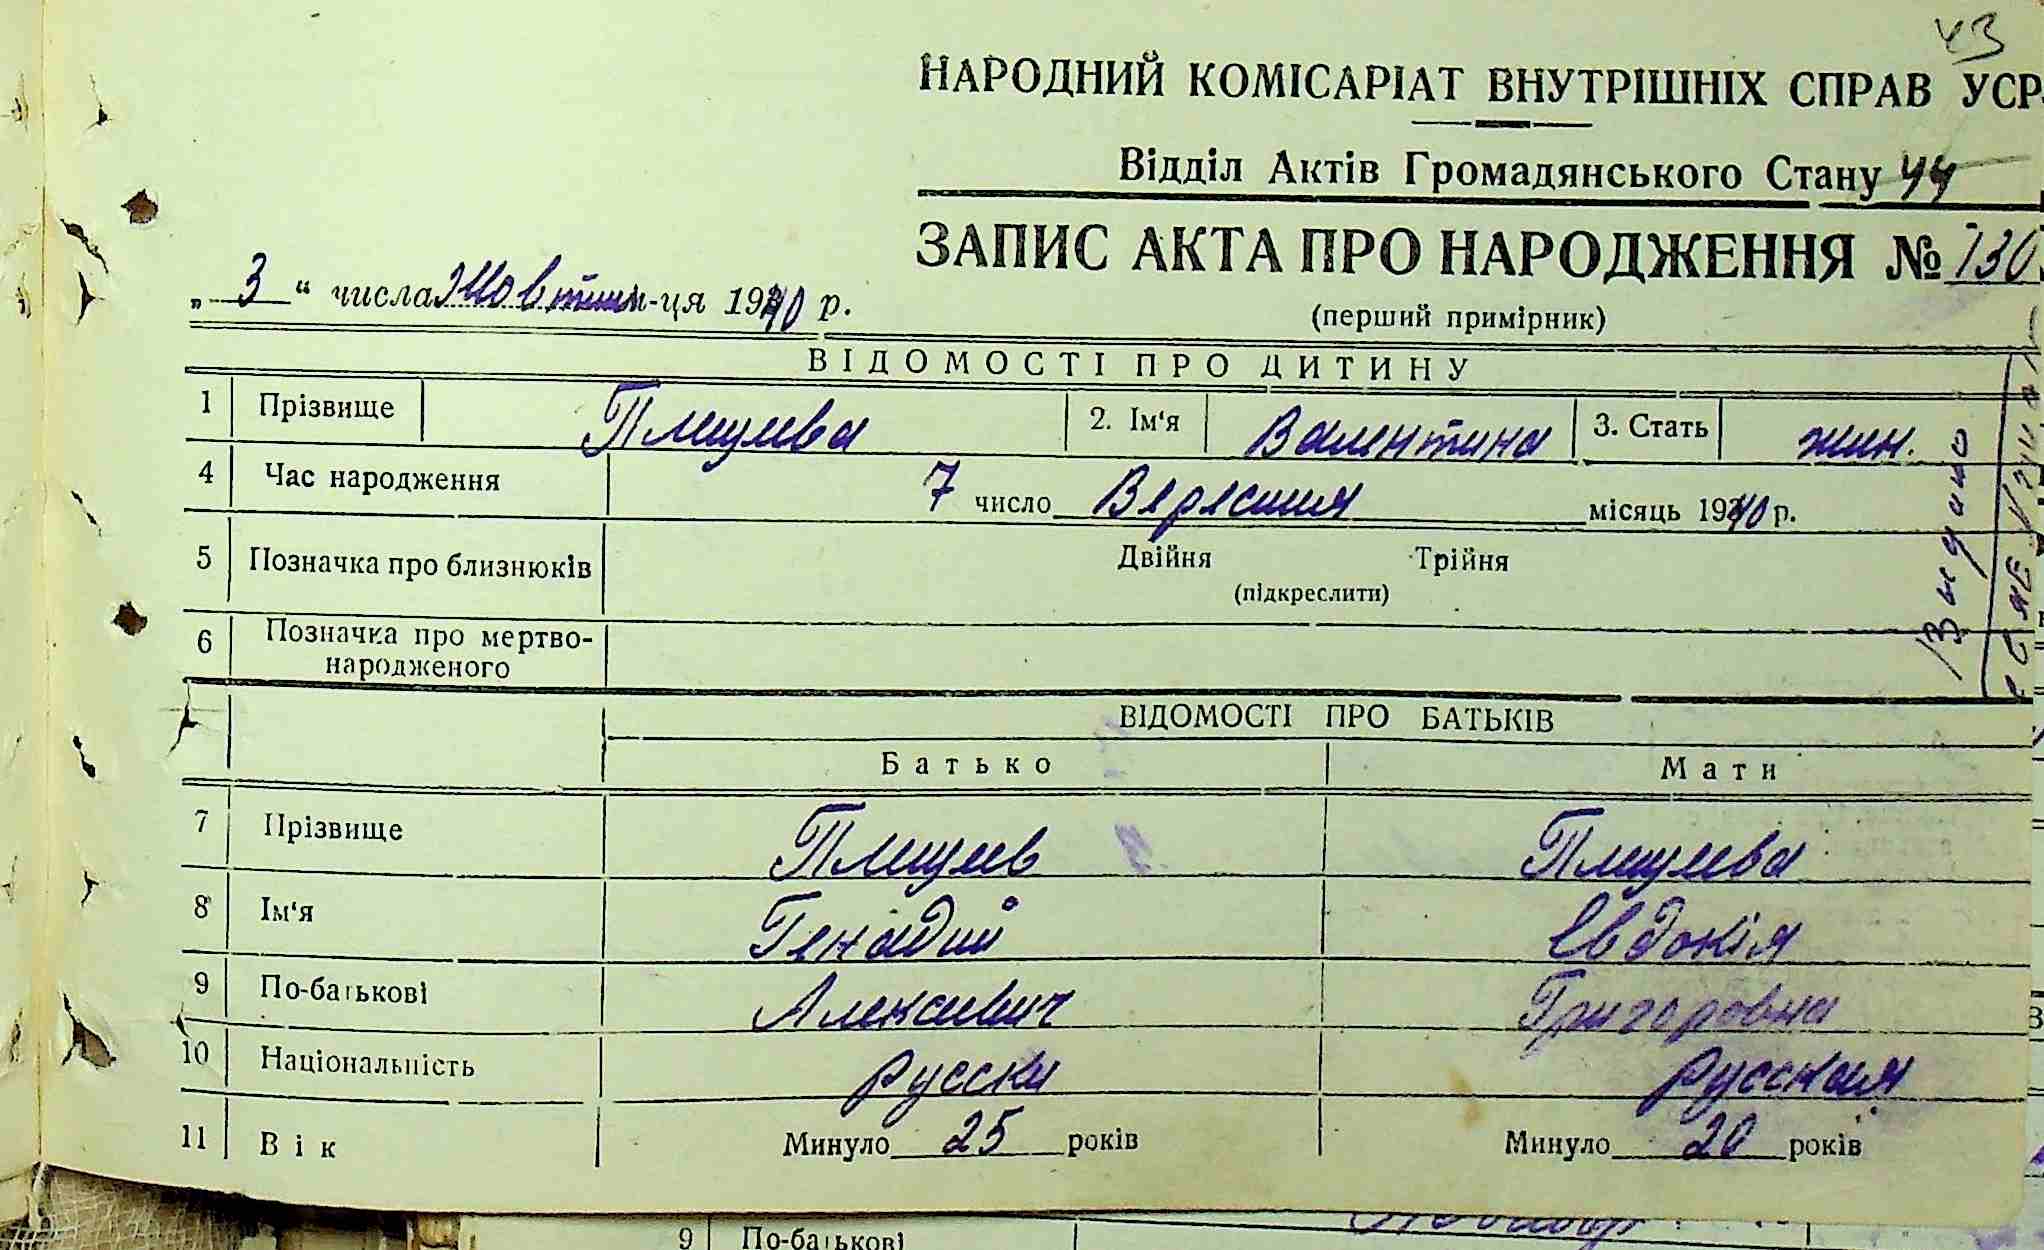 43
НАРОДНИЙ КОМІСАРІАТ ВНУТРІШНІХ СПРАВ УСР
Відділ Актів Громадянського Стану 44
ЗАПИС АКТА ПРО НАРОДЖЕННЯ № 730
„ 3 “ числа жовтня м-ця 1940 р.
(перший примірник)
ВІДОМОСТІ ПРО ДИТИНУ
1 Прізвище Плещуева 2. Ім‘я Валентина 3. Стать жен.
4 Час народження 7 число Вересния місяць 1940 р.
5 Позначка про близнюків Двійня Трійня
(підкреслити)
6 Позначка про мертво-
народженого
Видано
ВІДОМОСТІ ПРО БАТЬКІВ
Батько Мати
7 Прізвище Плещеев Плещеева
8 Ім‘я Генадий Евдокія
9 По-батькові Алексеевич Григоровна
10 Національність русски русская
11 Вік Минуло 25 років Минуло 20 років
9 По-батькові